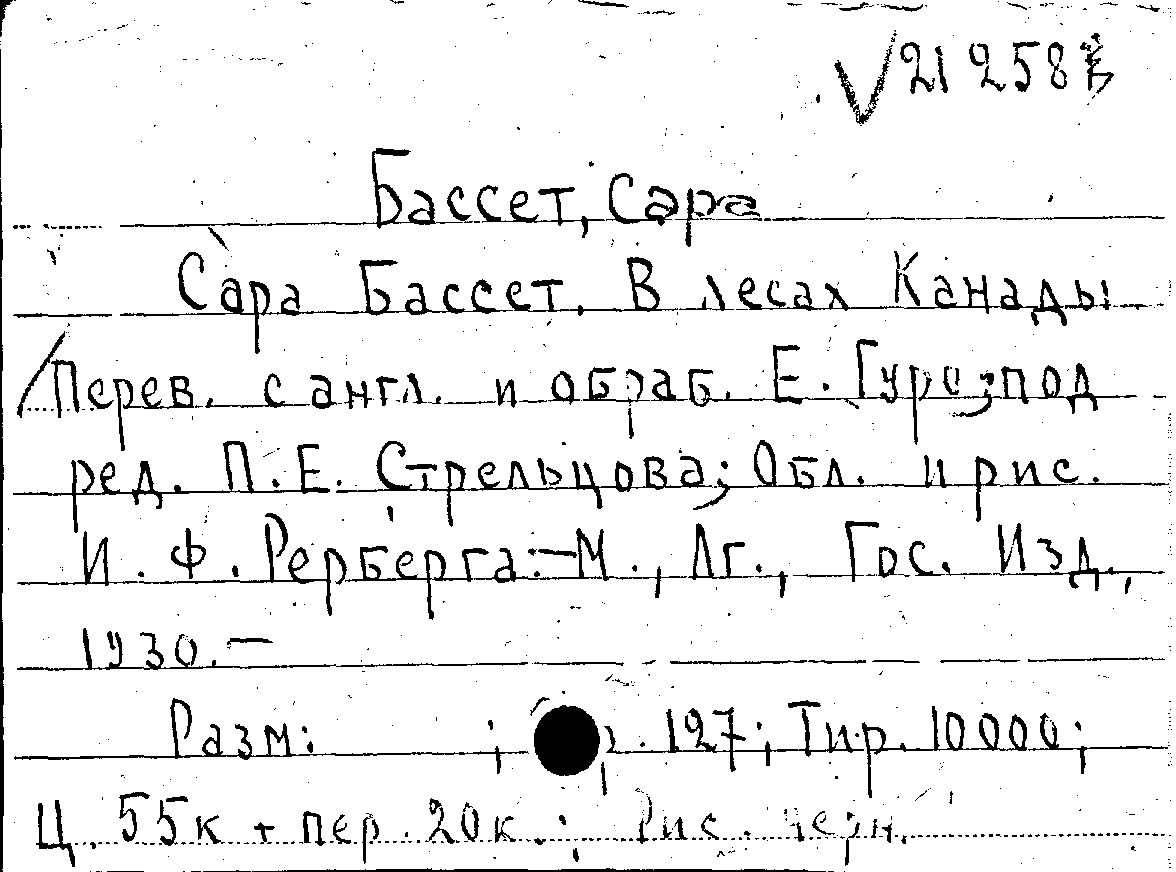 √21 258
Бассет, Сара
Сара Бассет. В лесах Канады
/Перев. с англ. и обраб. Е. Гуро; под
ред. П. Е. Стрельцова; Обл. и рис.
И. Ф. Рерберга.–М., Лг., Гос. Изд.,
1930.–
Разм: ; . 127; Тир. 10000;
Ц. 55к + пер. 20к.; Рис. черн.